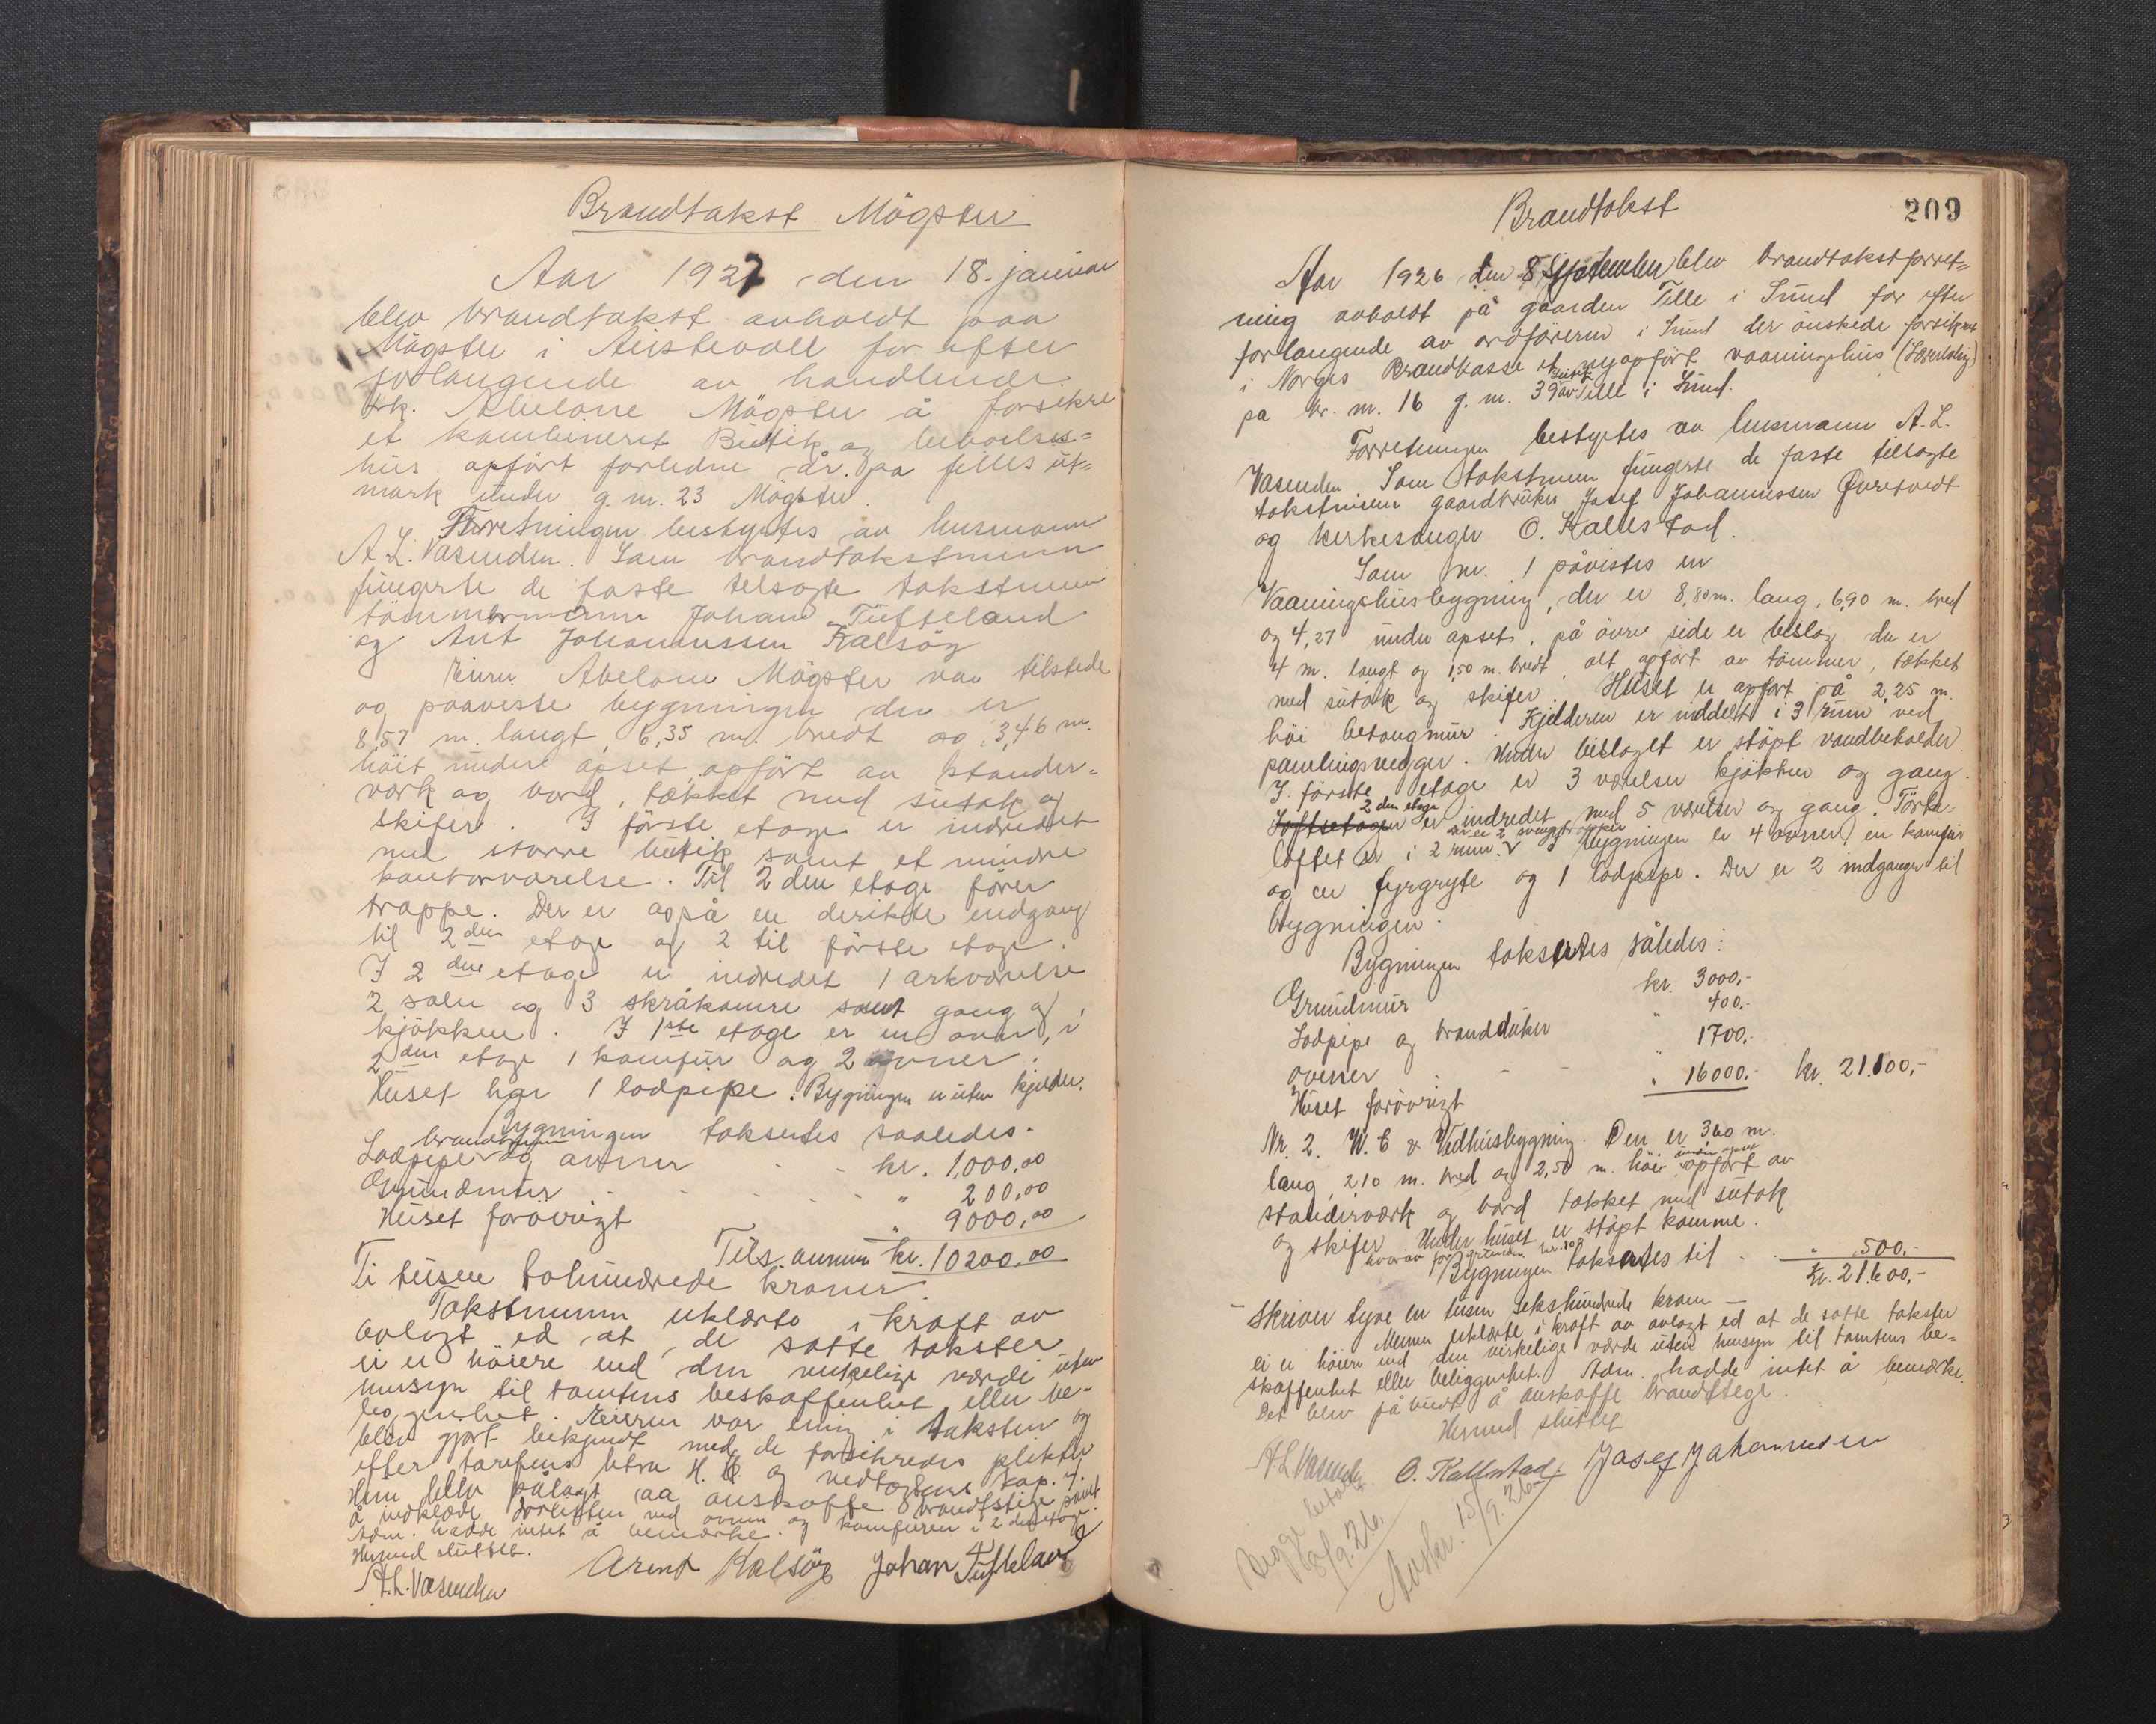 Brandtakst Mögster
Aar 1927 den 18. januar
blev brandtakst avholdt paa
Mögster i Austevoll for efter
forlangende av handlende
frk. Abelone Mögster å forsikre
et kombineret Butik og beboelses=
hus opfört forledne år på felles ut=
mark under g. nr. 23 Mögster.
Forretningen bestyrtes av lensmann
A. L. Vasenden. Som brandtakstmenn
fungerte de faste tilsagte takstmenn
tömmermann Johan Tufteland
og Arnt Johannessen Kalsög
Eieren Abelone Mögster var tilstede
og paaviste bygningen der er
8,57 m. langt, 6,35 m. bredt og 3,46 m.
höit under apset, opfört av stander=
verk og bord, tækket med sutak og
skifer. I förste etage er indredet
med större butik samt et mindre
kontorværelse. Til 2den etage förer
trappe. Der er også en direkte indgang
til 2den etage og 2 til förste etage.
I 2den etage er indredet 1 arkværelse
2 saler og 3 skråkamre samt gang og
kjökken. I 1ste etage er en ovn, i
2den etage 1 komfur og 2 ovner.
Huset har 1 lodpipe. Bygningen er uten kjelder.
Bygningen taksertes saaledes.
Lodpipe og ovner kr. 1,000,00
Grundmur " 200,00
Huset forövrigt " 9000,00
Tilsammen kr. 10200,00
Ti tusen tohundrede kroner.
Takstmenn erklærte i kraft av
avlagt ed, at de satte takster
ei er höiere end den virkelige værdi uten
hensyn til tomtens beskaffenhet eller be-
liggenhet. Eieren var enig i taksten og
blev gjort bekjendt med de forsikredes plikter
efter tarifens litra H. og vedtægtens kap. 4.
Hun blev pålagt aa anskaffe brandstige samt
å indklæde ved ovnen og komfuren i 2den etage.
Adm. hadde intet å bemærke.
Hermed sluttet.
A. L. Vasenden Arent Kalsög Johan Tufteland
209
Brandtakst
Aar 1926 den 8 September blev brandtakstforret=
ning avholdt på gaarden Telle i Sund for efter
forlangende av ordföreren i Sund der önskede forsikret
i Norges Brandkasse et nyopfört vaaningshus
på br. nr. 16 g. nr. 39 Telle i Sund.
Forretningen bestyrtes av lensmann A. L.
Vasenden. Som takstmenn fungerte de faste tilsagte
takstmenn gaardbruker Josef Johannessen Övretvedt
og kirkesanger O. Kallestad.
Som nr. 1 påvistes en
Vaaningshusbygning, der er 8,80 m. lang, 6,90 m. bred
og 4,27 under apset. på övre side er beslag der er
4 m. langt og 1,50 m. bredt, alt opfört av tömmer, tækket
med sutak og skifer. Huset er opfört på 2,25 m.
höi betongmur. Kjelderen er inddelt i 3 rum ved
panelingsvegger. Under bislaget er stöpt vandbeholder.
I förste etage er 3 værelser kjökken og gang.
2den etage
Loftsetagen er indredet med 5 værelser og gang. Törke=
der er 2 svingtrapper
loftet er i 2 rum. I bygningen er 4 ovner, en komfur
og en fyrgryte og 1 lodpipe. Der er 2 indganger til
bygningen.
Bygningen taksertes således:
Grundmur kr. 3000,-
Lodpipe og brandduker " 400,-
ovner " 1700,-
Huset forövrigt " 16000,- kr. 21.100,-
Nr. 2. W. C & Vedhusbygning. Den er 3,60 m.
lang, 2,10 m. bred og 2,50 m. höi under apset opfört av
standerværk og bord tækket med sutak
og skifer. Under huset er stöpt komme.
Bygningen taksertes til " 500,-
Kr. 21.600,-
- Skriver tyve en tusen sekshundrede kroner -
Mennene erklærte i kraft av avlagt ed at de satte takster
ei er höiere end den virkelige værde uten hensyn til tomtens be=
skaffenhet eller beliggenhet. Adm. hadde intet å bemærke.
Det blev påbudt å anskaffe brandstege.
Hermed sluttet
A L Vasenden O. Kallestad. Josef Johannessen
Begge betalt
8/9.26.
Avskr. 15/9.26